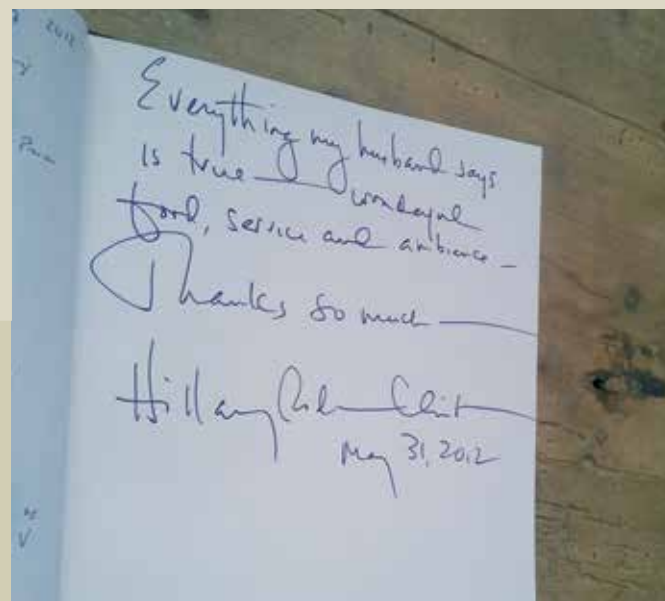 2012
Everything my husband says
is true — wonderful
food, service and ambience —
Thanks so much —
Hillary Rodham Clinton
May 31, 2012